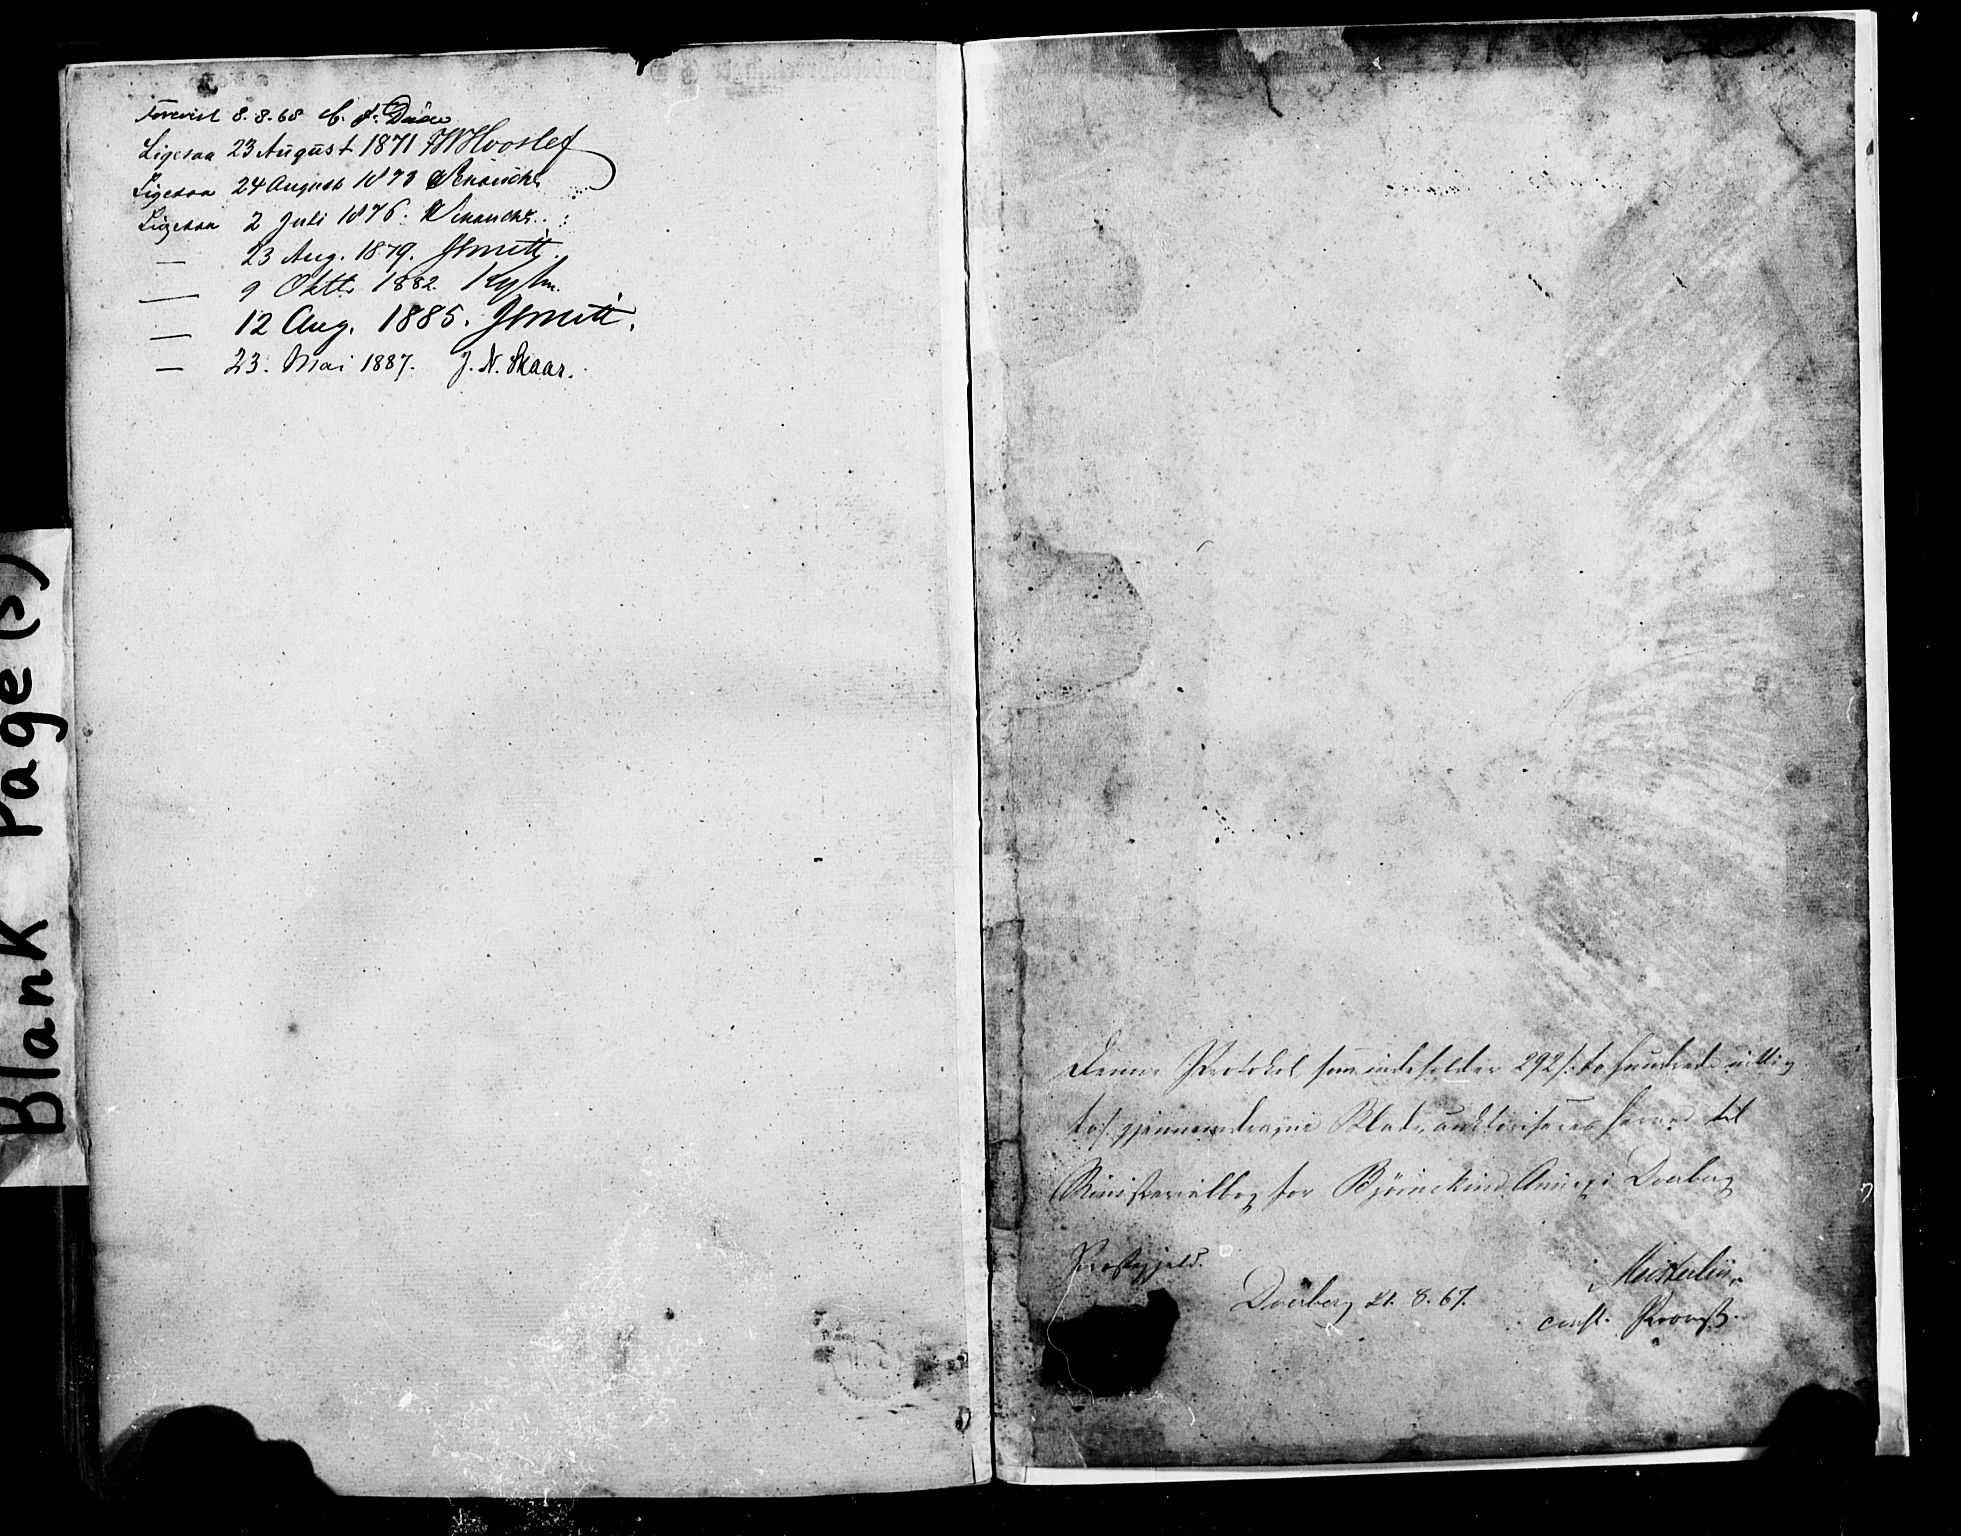 Forevist 8.8.68 C. F. Daae
Ligesaa 23 August 1871 FWHvoslef
Ligesaa 24 August 1873
Ligesaa 2 Juli 1876.
— 23 Aug. 1879. JSmitt.
— 9 Oktbr 1882.
— 12 Aug. 1885. JSmitt.
— 23. Mai 1887. J. N. Skaar.
Blank Page(s)
Denne Protokol, som indeholder 292 /: to hundrede nitti og
to :/ gjennemdragne Blade, auktoriseres herved til
Ministerialbog for Bjørnskinds Annex i Dverberg
Præstegjeld.
Dverberg 21. 8. 67.
const. Provst.